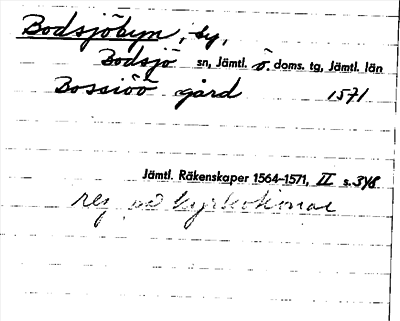 Bodsjöbyn, by,
Bodsjö sn, Jämtl. ö. doms. tg, Jämtl. län
Bossiöö gård 1571
Jämtl. Räkenskaper 1564–1571, II s. 348
reg